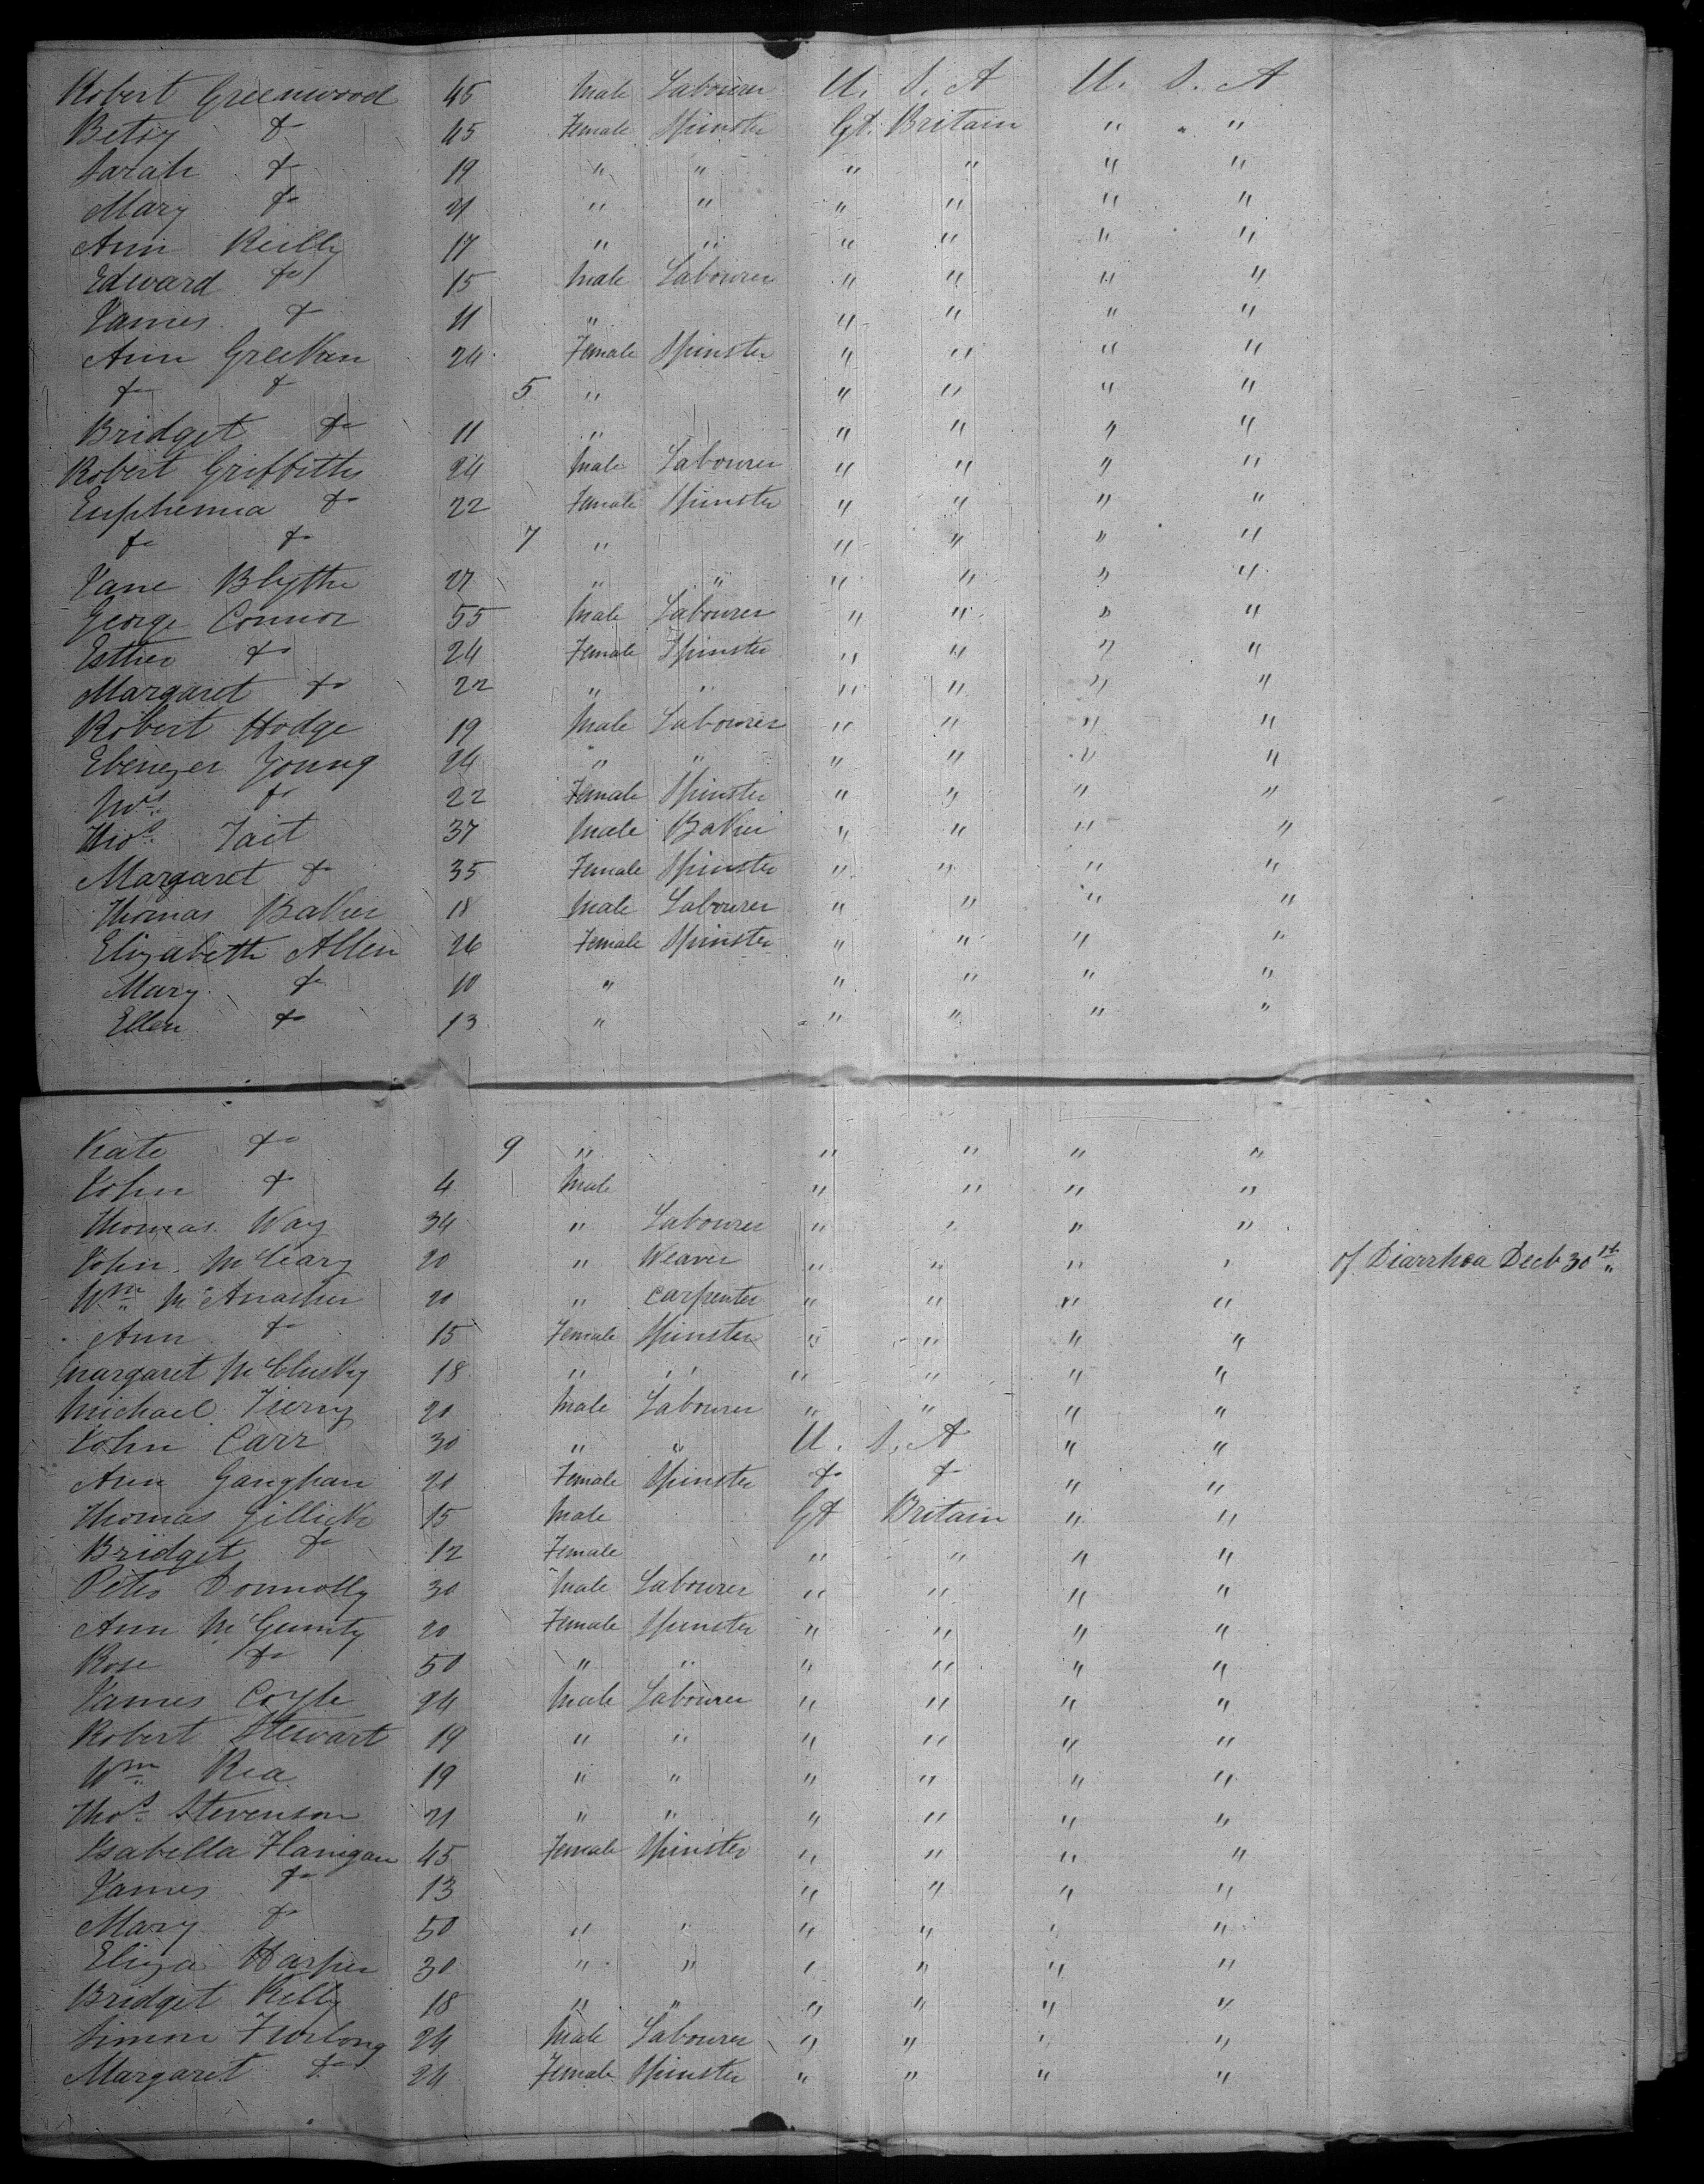 Robert Greenwood 45 Male Labourer U. S. A U. S. A
Betsy do 45 Female Spinster Gt. Britain " "
Sarah do 19 " " " " " "
Mary do 21 " " " " " "
Ann Reilly 17 " " " " " "
Edward do 15 Male Labourer " " " "
James do 11 " " " " "
Ann Greekan 24 Female Spinster " " " "
do do 5 " " " " "
Bridget do 11 " " " " "
Robert Griffiths 24 Male Labourer " " " "
Euphemia do 22 Female Spinster " " " "
do do 7 " " " " "
Jane Blythe 27 " " " " " "
George Connor 55 Male Labourer " " " "
Esther do 24 Female Spinster " " " "
Margaret do 22 " " " " " "
Robert Hodge 19 Male Labourer " " " "
Ebenezer Young 24 " " " " " "
Mrs. do 22 Female Spinster " " " "
Thos. Tait 37 Male Baker " " " "
Margaret do 35 Female Spinster " " " "
Thomas Baker 18 Male Labourer " " " "
Elizabeth Allen 26 Female Spinster " " " "
Mary do 10 " " " " "
Ellen do 13 " " " " "
Kate do 9 " " " " "
John do 4 Male " " " "
Thomas Way 34 " Labourer " " " "
John McGeary 20 " Weaver " " " " of Diarrhoea Decb 30th
Wm McAnasher 20 " Carpenter " " " "
Ann do 15 Female Spinster " " " "
Margaret McClusky 18 " " " " " "
Michael Tierny 20 Male Labourer " " " "
John Carr 30 " " U. S. A " "
Ann Ganghan 20 Female Spinster do do " "
Thomas Gillick 15 Male Gt Britain " "
Bridget do 12 Female " " " "
Peter Donnolly 30 Male Labourer " " " "
Ann McGumty 20 Female Spinster " " " "
Rose do 50 " " " " " "
James Coyle 24 Male Labourer " " " "
Robert Stewart 19 " " " " " "
Wm Rea 19 " " " " " "
Thos. Stevenson 21 " " " " " "
Isabella Flanigan 45 Female Spinster " " " "
James do 13 " " " "
Mary do 50 " " " " " "
Eliza Harper 30 " " " " " "
Bridget Kelly 18 " " " " " "
Simon Furlong 24 Male Labourer " " " "
Margaret do 24 Female Spinster " " " "